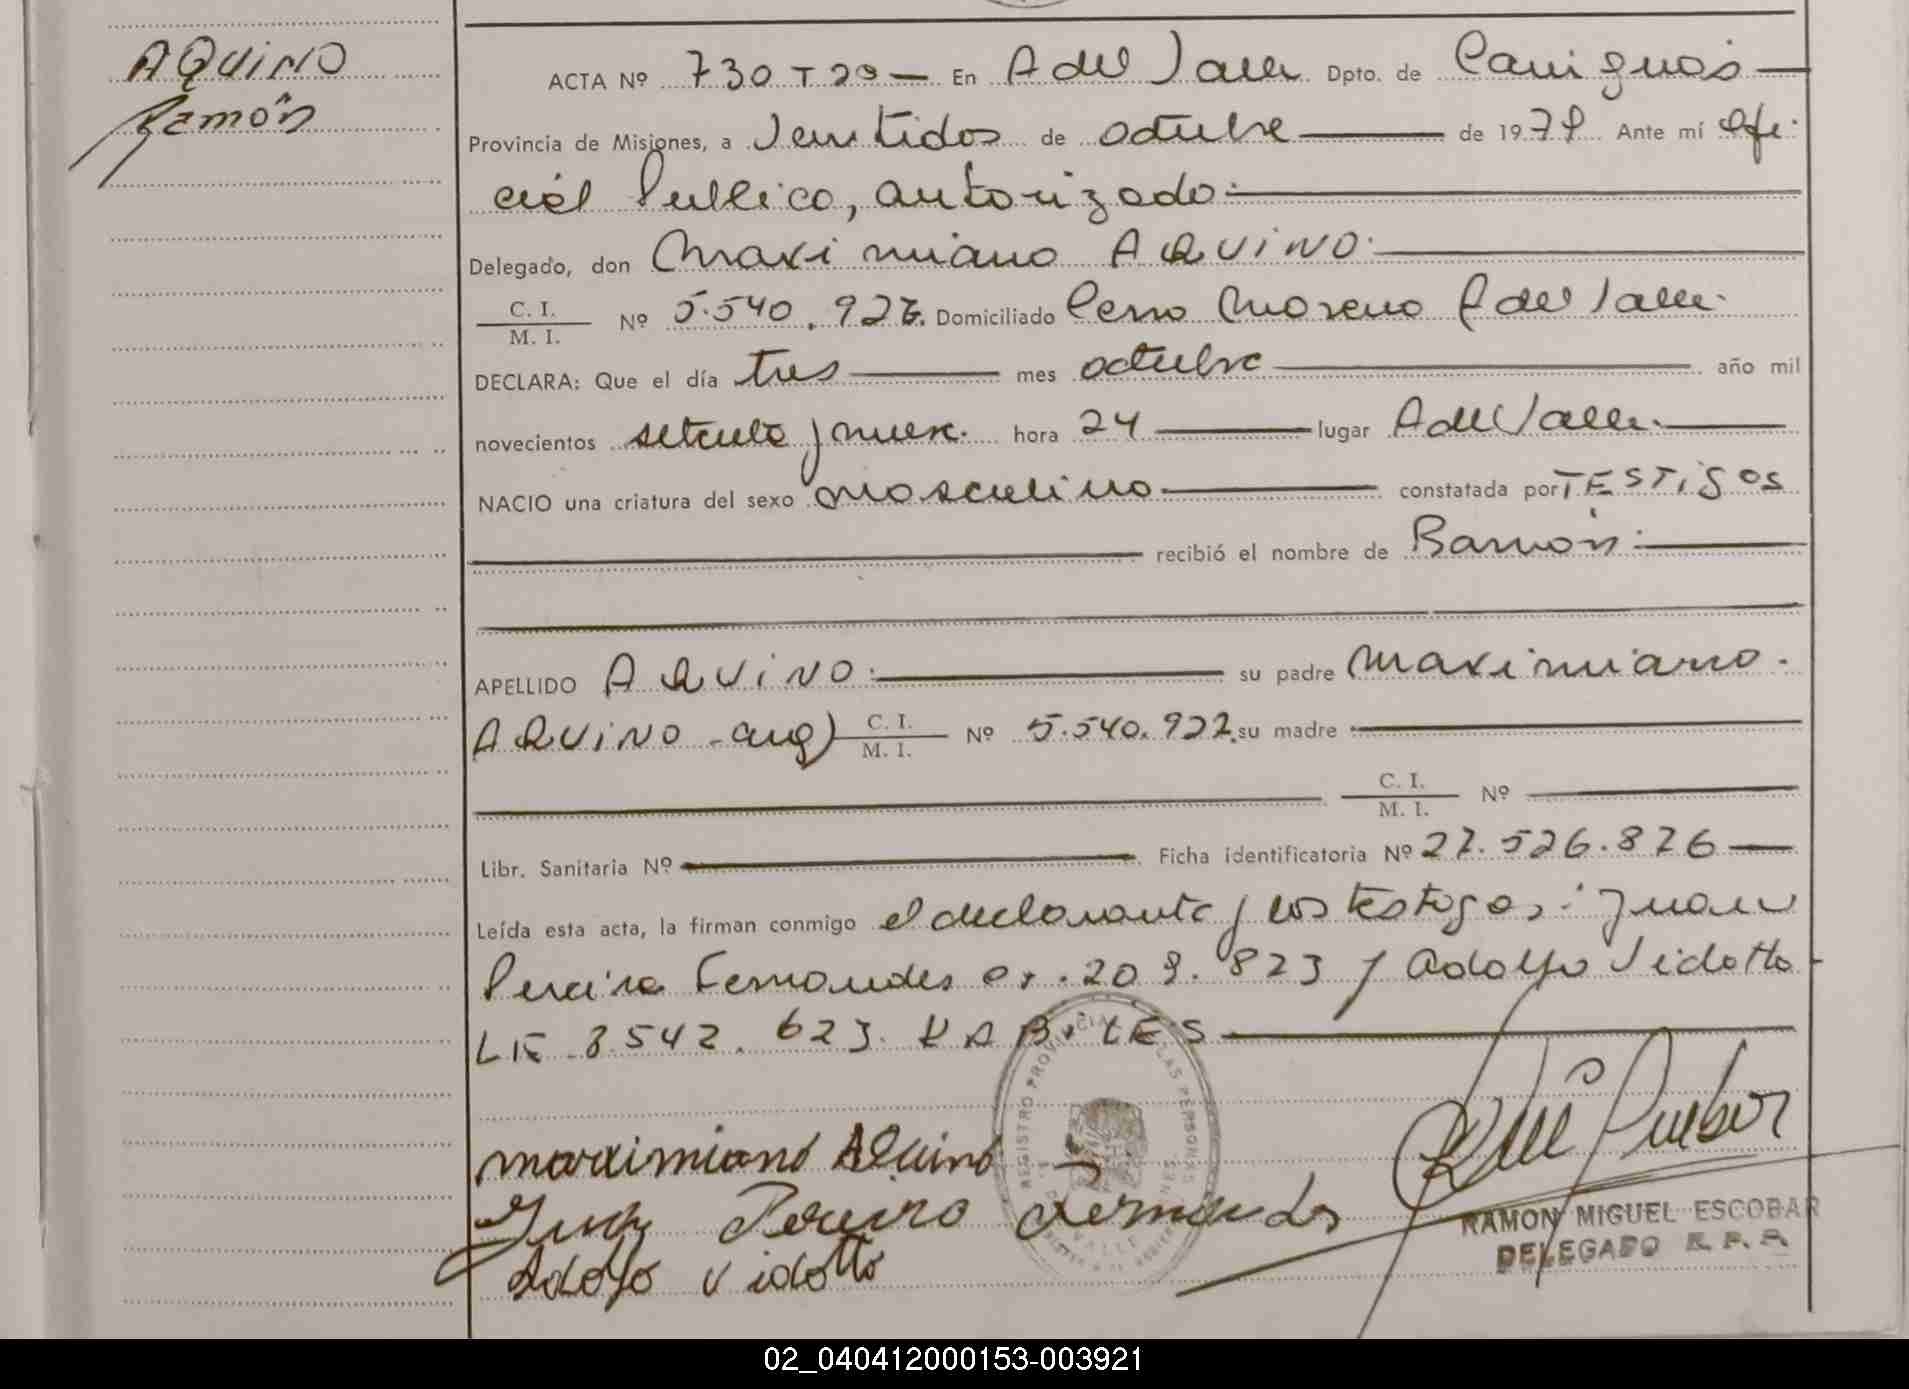 AQUINO
Ramón
ACTA Nº 730 T 2º — En A del Valle Dpto. de Cainguás
Provincia de Misiones, a Veintidos de octubre de 1979 Ante mí Ofi-
cial Publico, autorizado:
Delegado, don Maximiano AQUINO.
C. I. / M. I. Nº 5.540.927. Domiciliado Cerro Moreno A del Valle.
DECLARA: Que el día tres mes octubre año mil
novecientos setenta y nueve. hora 24 lugar A del Valle.
NACIO una criatura del sexo masculino constatada por TESTIGOS
recibió el nombre de Ramón.
APELLIDO AQUINO. su padre Maximiano.
AQUINO - arg) C. I. / M. I. Nº 5.540.927. su madre
C. I. / M. I. Nº
Libr. Sanitaria Nº Ficha identificatoria Nº 27.526.876
Leída esta acta, la firman conmigo el declarante y los testogos: Juan
Pereira Fernandes 209.823 y Adolfo Vidotto
LE 8.542.623. HABILES
maximiano Aquino
Juan Pereira Fernandes
Adolfo Vidotto
REGISTRO PROVINCIAL DE LAS PERSONAS
RAMON MIGUEL ESCOBAR
DELEGADO R. P. P.
02_040412000153-003921